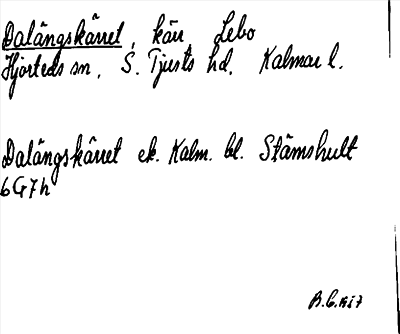 Dalängskärret, kärr Lebo
Hjorteds sn, S. Tjusts hd. Kalmar l.
Dalängskärret ek. Kalm. bl. Stämshult
6G7h